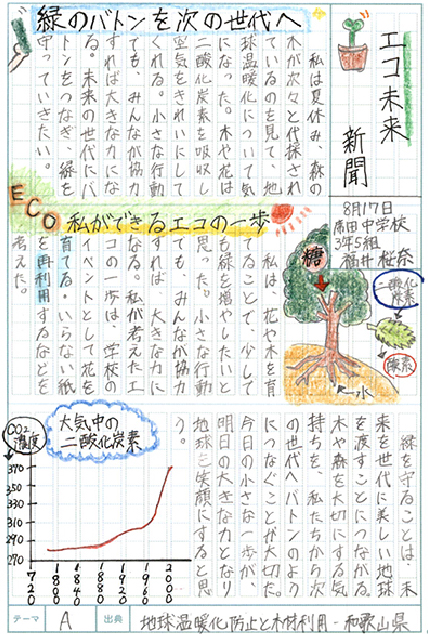 エコ未来
新聞
8月17日
3年5組
福井桜奈
緑のバトンを次の世代へ
私は夏休み、森の
木が次々と伐採され
ているのを見て、地
球温暖化について気
になった。木や花は
二酸化炭素を吸収し
空気をきれいにして
くれる。小さな行動
でも、みんなが協力
すれば大きな力にな
る。未来の世代にバ
トンをつなぎ、緑を
守っていきたい。
ECO
私ができるエコの一歩
私は、花や木を育
てることで、少しで
も緑を増やしたいと
思った。小さな行動
でも、みんなが協力
すれば、大きな力に
なる。私が考えたエ
コの一歩は、学校の
イベントとして花を
育てる・いらない紙
を再利用するなどを
考えた。
糖
二酸化
炭素
酸素
水
緑を守ることは、未
来を世代に美しい地球
を渡すことにつながる。
木や森を大切にする気
持ちを、私たちから次
の世代へバトンのよう
につなぐことが大切だ。
今日の小さな一歩が、
明日の大きな力となり
地球を笑顔にすると思
う。
大気中の
二酸化炭素
CO2
濃度
370
350
330
310
290
270
1720
1800
1840
1880
1920
1960
2000
テーマ
A
出典
地球温暖化防止と木材利用-和歌山県